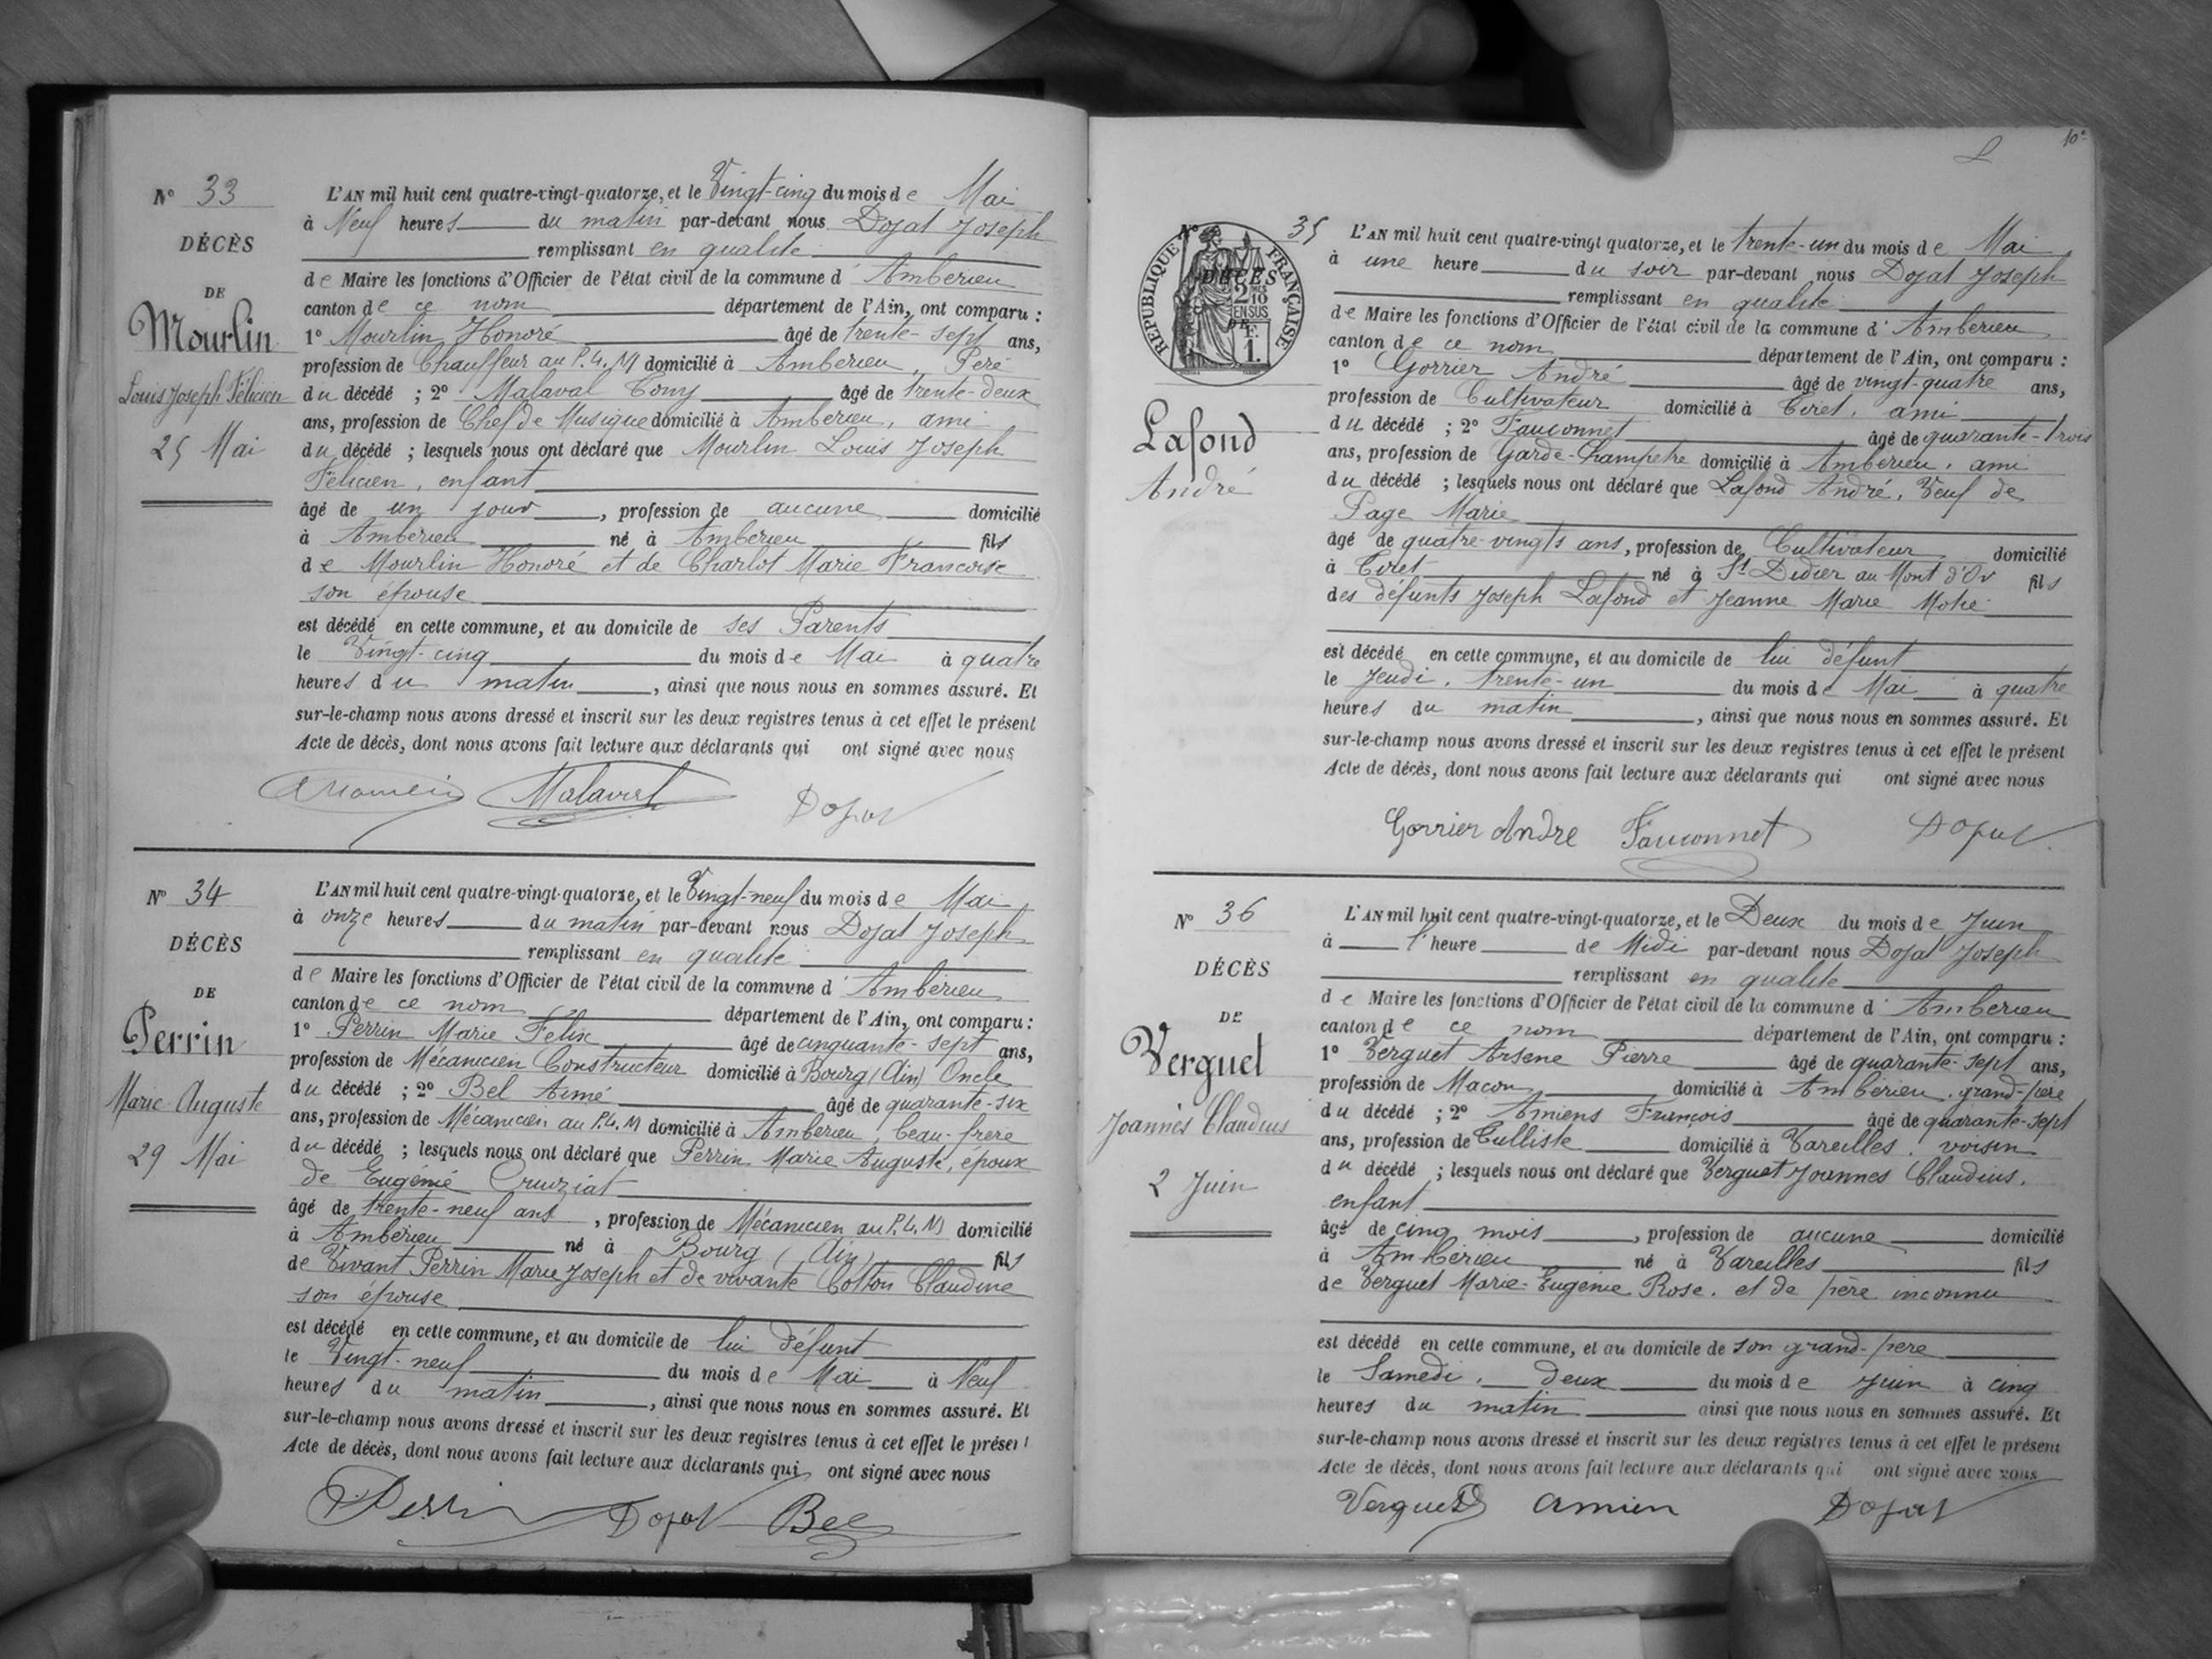 N° 33
DÉCÈS
DE
Mourlin
Louis Joseph Félicien
25 Mai
L'AN mil huit cent quatre-vingt-quatorze, et le Vingt-cinq du mois de Mai
à Neuf heures du matin par-devant nous Dojat Joseph
remplissant en qualité
de Maire les fonctions d'Officier de l'état civil de la commune d'Ambérieu
canton de ce nom département de l'Ain, ont comparu :
1° Mourlin Honoré âgé de trente-sept ans,
profession de Chauffeur au P.L.M domicilié à Ambérieu, Père
du décédé ; 2° Malaval Tony âgé de trente-deux
ans, profession de Chef de Musique domicilié à Ambérieu, ami
du décédé ; lesquels nous ont déclaré que Mourlin Louis Joseph
Félicien, enfant
âgé de un jour, profession de aucune domicilié
à Ambérieu né à Ambérieu fils
de Mourlin Honoré et de Charlot Marie Francoise
son épouse
est décédé en cette commune, et au domicile de ses Parents
le Vingt-cinq du mois de Mai à quatre
heures du matin, ainsi que nous nous en sommes assuré. Et
sur-le-champ nous avons dressé et inscrit sur les deux registres tenus à cet effet le présent
Acte de décès, dont nous avons fait lecture aux déclarants qui ont signé avec nous
Malaval Dojat
N° 34
DÉCÈS
DE
Perrin
Marie Auguste
29 Mai
L'AN mil huit cent quatre-vingt-quatorze, et le Vingt-neuf du mois de Mai
à onze heures du matin par-devant nous Dojat Joseph
remplissant en qualité
de Maire les fonctions d'Officier de l'état civil de la commune d'Ambérieu
canton de ce nom département de l'Ain, ont comparu :
1° Perrin Marie Felix âgé de cinquante-sept ans,
profession de Mécanicien Constructeur domicilié à Bourg (Ain) Oncle
du décédé ; 2° Bel Aimé âgé de quarante-six
ans, profession de Mécanicien au P.L.M domicilié à Ambérieu, beau-frère
du décédé ; lesquels nous ont déclaré que Perrin Marie Auguste, époux
de Eugénie Cruiziat
âgé de trente-neuf ans, profession de Mécanicien au P.L.M domicilié
à Ambérieu né à Bourg (Ain) fils
de Vivant Perrin Marie Joseph et de vivante Cotton Claudine
son épouse
est décédé en cette commune, et au domicile de lui défunt
le Vingt-neuf du mois de Mai à Neuf
heures du matin, ainsi que nous nous en sommes assuré. Et
sur-le-champ nous avons dressé et inscrit sur les deux registres tenus à cet effet le présent
Acte de décès, dont nous avons fait lecture aux déclarants qui ont signé avec nous
Perrin Dojat Bel
10e
N° 35
RÉPUBLIQUE FRANÇAISE
2 MES 10 EN SUS
F. 1.
DÉCÈS
DE
Lafond
André
L'AN mil huit cent quatre-vingt quatorze, et le trente-un du mois de Mai
à une heure du soir par-devant nous Dojat Joseph
remplissant en qualité
de Maire les fonctions d'Officier de l'état civil de la commune d'Ambérieu
canton de ce nom département de l'Ain, ont comparu :
1° Gorrier André âgé de vingt-quatre ans,
profession de Cultivateur domicilié à Tiret, ami
du décédé ; 2° Fauconnet âgé de quarante-trois
ans, profession de Garde-Champetre domicilié à Ambérieu, ami
du décédé ; lesquels nous ont déclaré que Lafond André, Veuf de
Page Marie
âgé de quatre-vingts ans, profession de Cultivateur domicilié
à Tiret né à St Didier au Mont d'Or fils
des défunts Joseph Lafond et Jeanne Marie
est décédé en cette commune, et au domicile de lui défunt
le Jeudi, trente-un du mois de Mai à quatre
heures du matin, ainsi que nous nous en sommes assuré. Et
sur-le-champ nous avons dressé et inscrit sur les deux registres tenus à cet effet le présent
Acte de décès, dont nous avons fait lecture aux déclarants qui ont signé avec nous
Gorrier Andre Fauconnet Dojat
N° 36
DÉCÈS
DE
Verguet
Joannès Claudius
2 Juin
L'AN mil huit cent quatre-vingt-quatorze, et le Deux du mois de Juin
à l'heure de Midi par-devant nous Dojat Joseph
remplissant en qualité
de Maire les fonctions d'Officier de l'état civil de la commune d'Ambérieu
canton de ce nom département de l'Ain, ont comparu :
1° Verguet Arsene Pierre âgé de quarante-sept ans,
profession de Macon domicilié à Ambérieu, grand-père
du décédé ; 2° Amiens François âgé de quarante-sept
ans, profession de Tulliste domicilié à Vareilles, voisin
du décédé ; lesquels nous ont déclaré que Verguet Joannes Claudius,
enfant
âgé de cinq mois, profession de aucune domicilié
à Ambérieu né à Vareilles fils
de Verguet Marie-Eugénie Rose, et de père inconnu
est décédé en cette commune, et au domicile de son grand-père
le Samedi, deux du mois de Juin à cinq
heures du matin ainsi que nous nous en sommes assuré. Et
sur-le-champ nous avons dressé et inscrit sur les deux registres tenus à cet effet le présent
Acte de décès, dont nous avons fait lecture aux déclarants qui ont signé avec nous
Verguet Amien Dojat